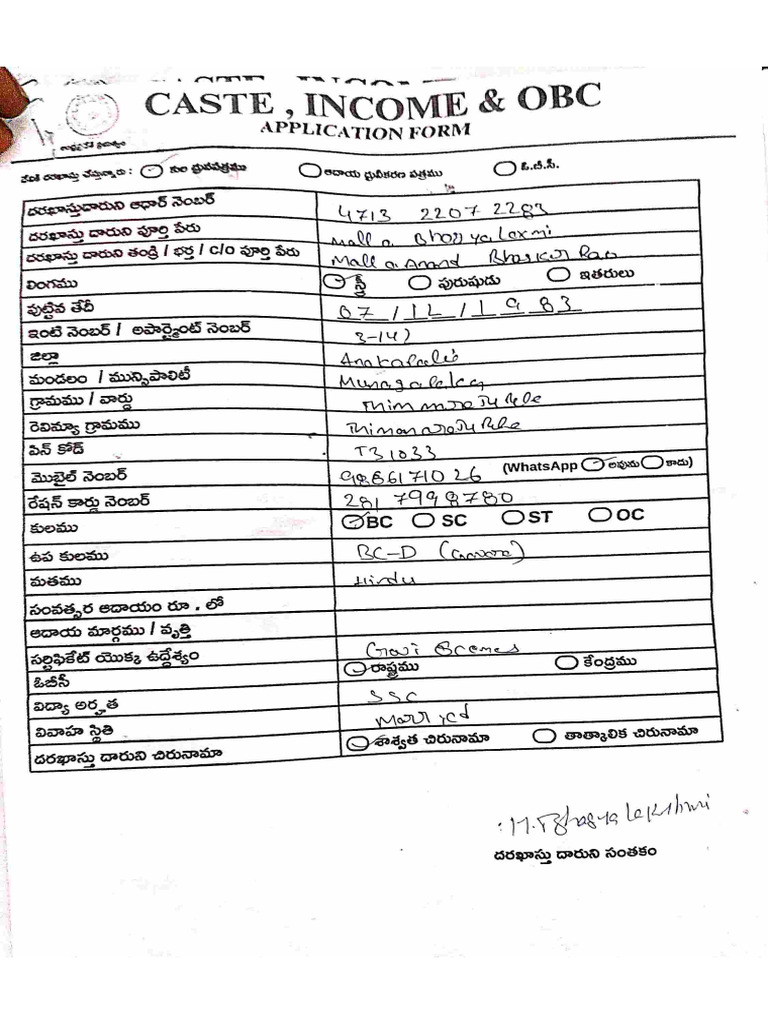 CASTE , INCOME & OBC
APPLICATION FORM
దేనికి దరఖాస్తు చేస్తున్నారు : కుల ధ్రువపత్రము ఆదాయ ధ్రువీకరణ పత్రము ఓ.బి.సి.
దరఖాస్తుదారుని ఆధార్ నెంబర్ 4713 2207 2283
దరఖాస్తు దారుని పూర్తి పేరు Malla Bhagyalaxmi
దరఖాస్తు దారుని తండ్రి / భర్త / c/o పూర్తి పేరు Malla Anand Bhaskar Rao
లింగము స్త్రీ పురుషుడు ఇతరులు
పుట్టిన తేదీ 07/12/1983
ఇంటి నెంబర్ / అపార్ట్మెంట్ నెంబర్ 3-147
జిల్లా Anakapalle
మండలం / మున్సిపాలిటీ Munagapaka
గ్రామము / వార్డు
రెవిన్యూ గ్రామము
పిన్ కోడ్ 531033
మొబైల్ నెంబర్ 9886171026 (WhatsApp అవును కాదు)
రేషన్ కార్డు నెంబర్ 2817998780
కులము BC SC ST OC
ఉప కులము BC-D (Gavara)
మతము Hindu
సంవత్సర ఆదాయం రూ . లో
ఆదాయ మార్గము / వృత్తి
సర్టిఫికేట్ యొక్క ఉద్దేశ్యం
ఓబీసీ రాష్ట్రము కేంద్రము
విద్యా అర్హత SSC
వివాహ స్థితి Married
దరఖాస్తు దారుని చిరునామా శాశ్వత చిరునామా తాత్కాలిక చిరునామా
M. Bhagya lakshmi
దరఖాస్తు దారుని సంతకం